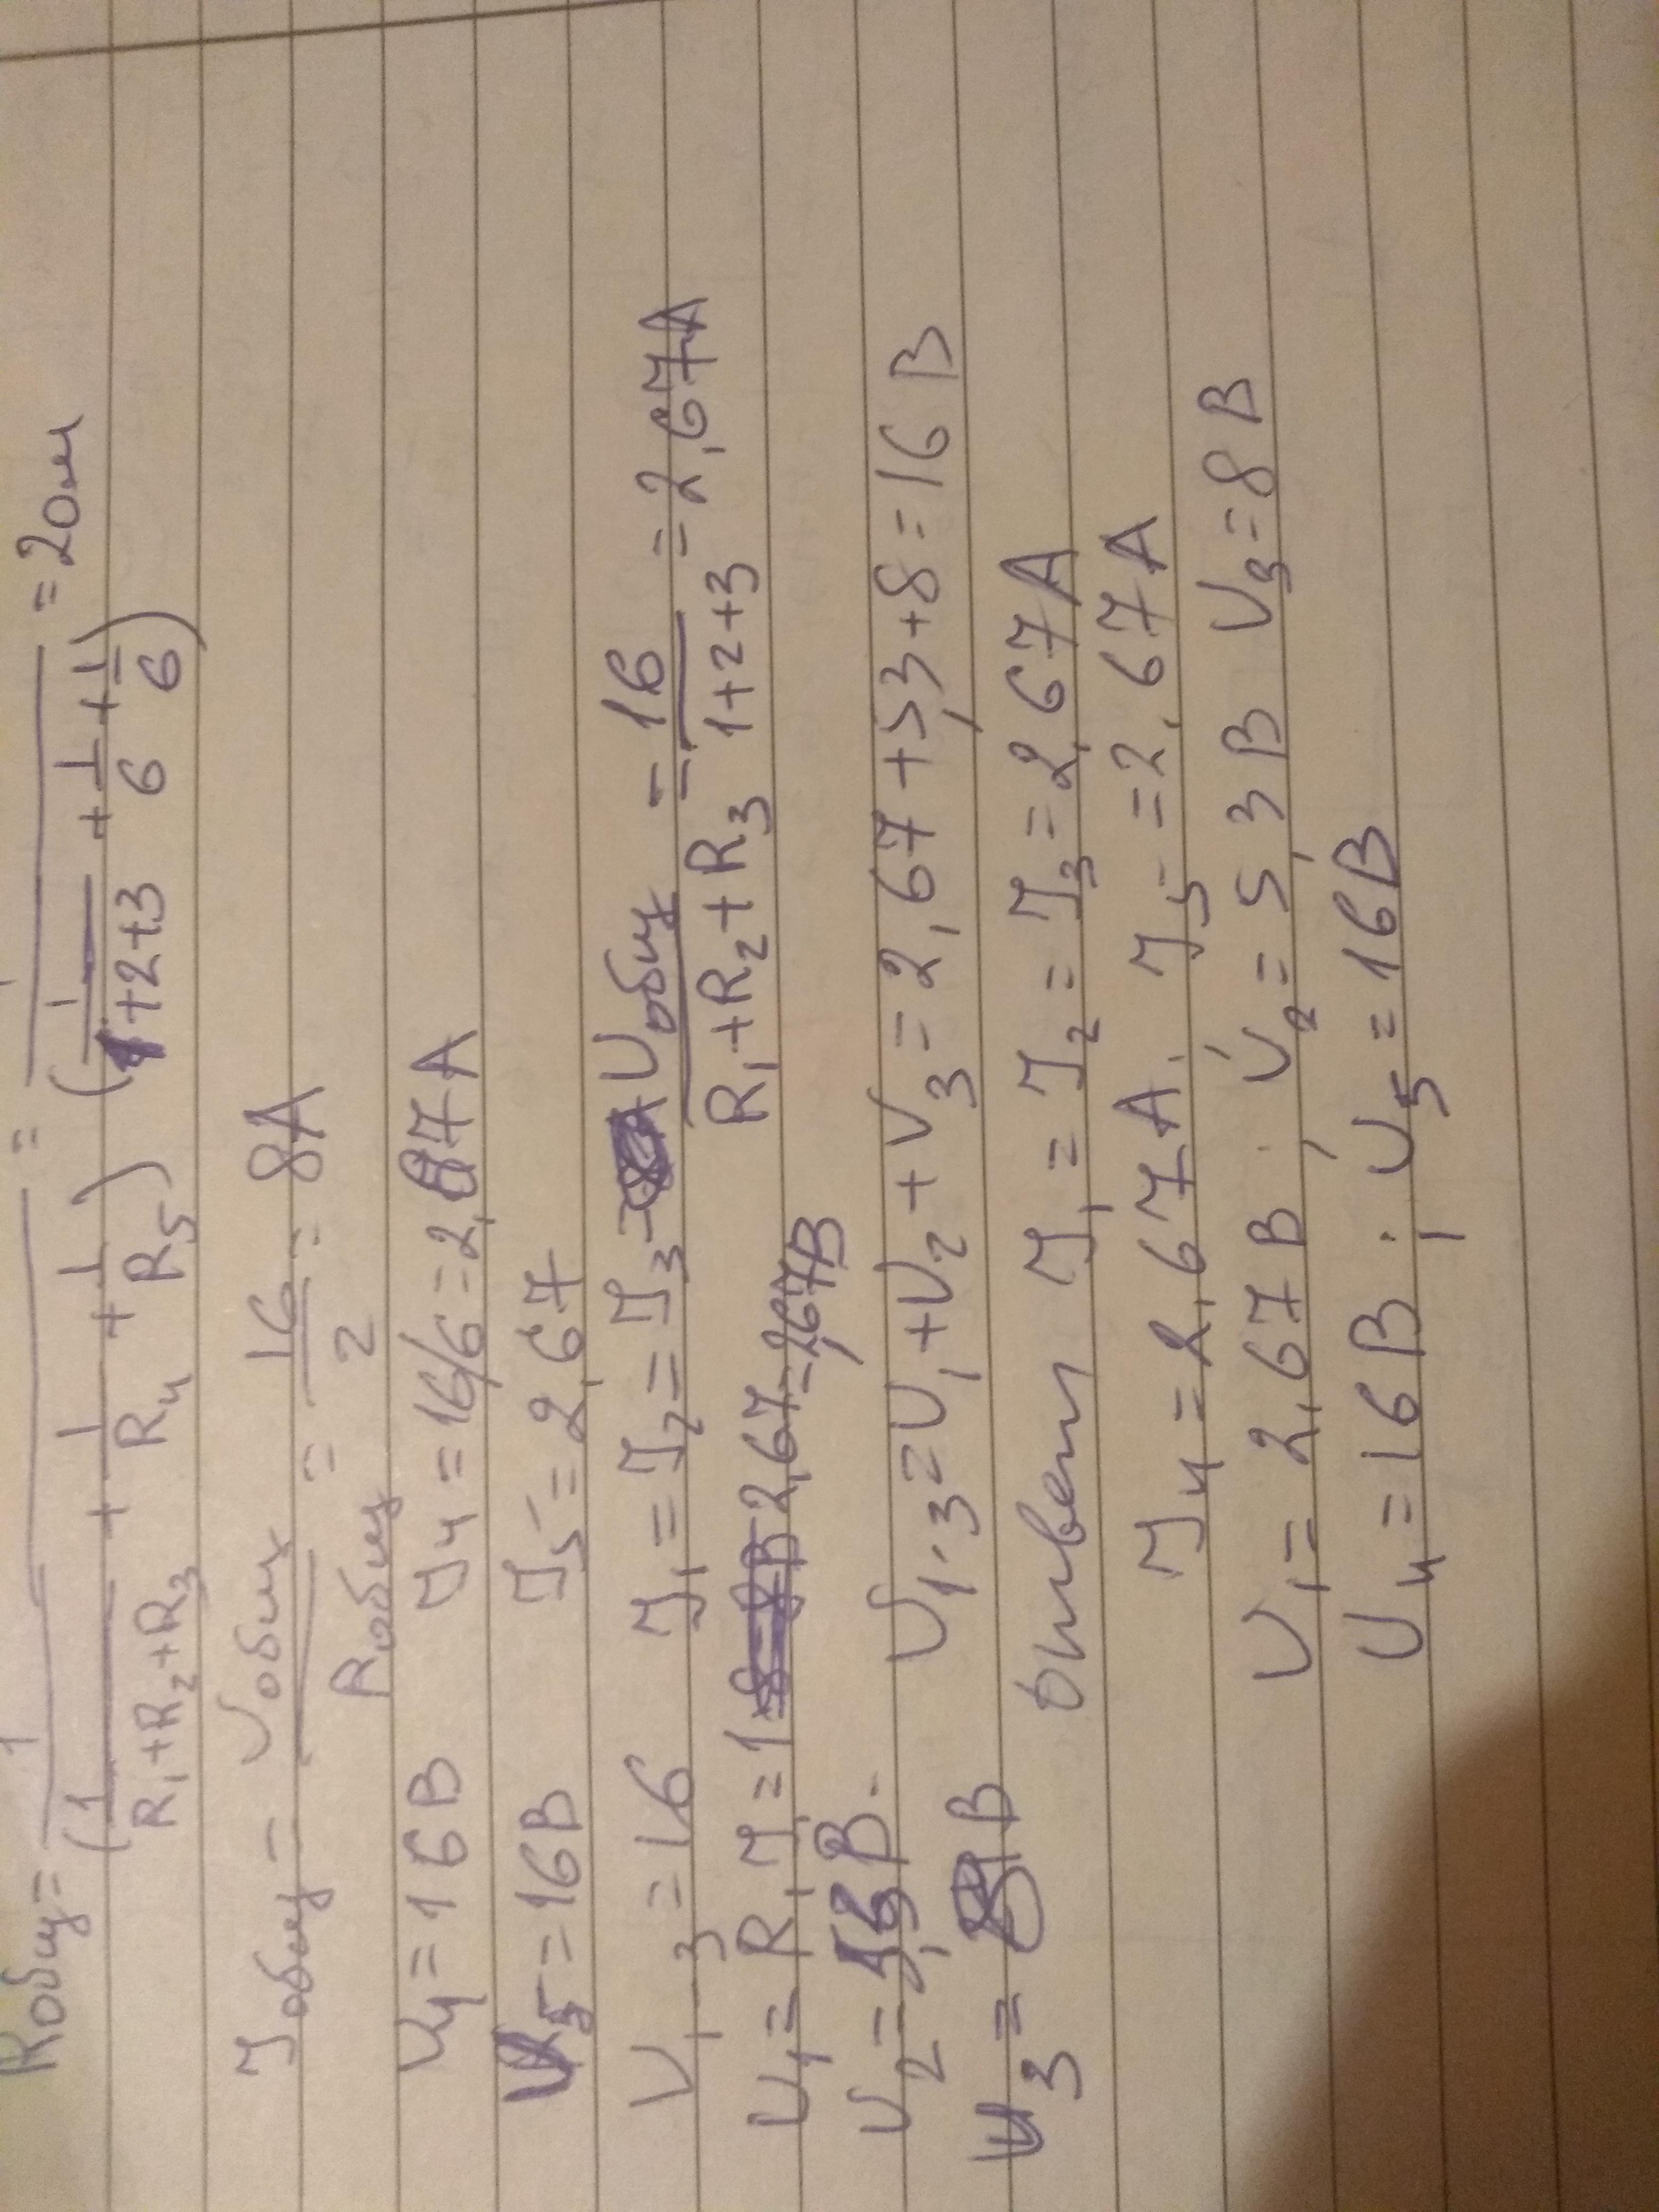 Rобщ = 1 / (1/(R₁+R₂+R₃) + 1/R₄ + 1/R₅) = 1 / (1/(1+2+3) + 1/6 + 1/6) = 2Ом
Jобщ = Uобщ/Rобщ = 16/2 = 8А
U₄ = 16В J₄ = 16/6 = 2,67А
U₅ = 16В J₅ = 2,67
U₁₋₃ = 16 J₁ = J₂ = J₃ = Uобщ/(R₁+R₂+R₃) = 16/(1+2+3) = 2,67А
U₁ = R₁J₁ = 1 · 2,67 = 2,67В
U₂ = 5,3В.
U₁·₃ = U₁+U₂+U₃ = 2,67+5,3+8 = 16В
U₃ = 8В
Ответ J₁ = J₂ = J₃ = 2,67А
J₄ = 2,67А; J₅ = 2,67А
U₁ = 2,67В; U₂ = 5,3В U₃ = 8В
U₄ = 16В; U₅ = 16В